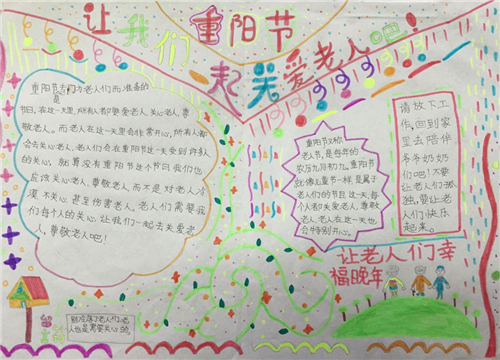 让我们重阳节
一起关爱老人吧!
重阳节是专门为老人们而准备的
节日,在这一天里,所有人都要爱老人,关心老人,尊
敬老人。而老人在这一天里会非常开心,所有人都
会去关心老人,老人们会在重阳节这一天受到许多人
的关心,就算没有重阳节这个节日我们也
应该关心老人,尊敬老人,而不是对老人冷
漠不关心甚至伤害老人,老人们需要我
们每个人的关心,让我们一起去关爱老
人,尊敬老人吧!
重阳节又称
老人节,是每年的
农历九月初九,重阳节
就像儿童节一样,是属于
老人们的节日,这一天,每
个人都关爱老人,尊敬
老人,老人在这一天也
会特别开心。
请放下工
作,回到家
里去陪伴
爷爷奶奶
们吧!不要
让老人们孤
独,要让老
人们快乐
起来。
让老人们幸
福晚年
别冷落了老人们,老
人也是需要关心的